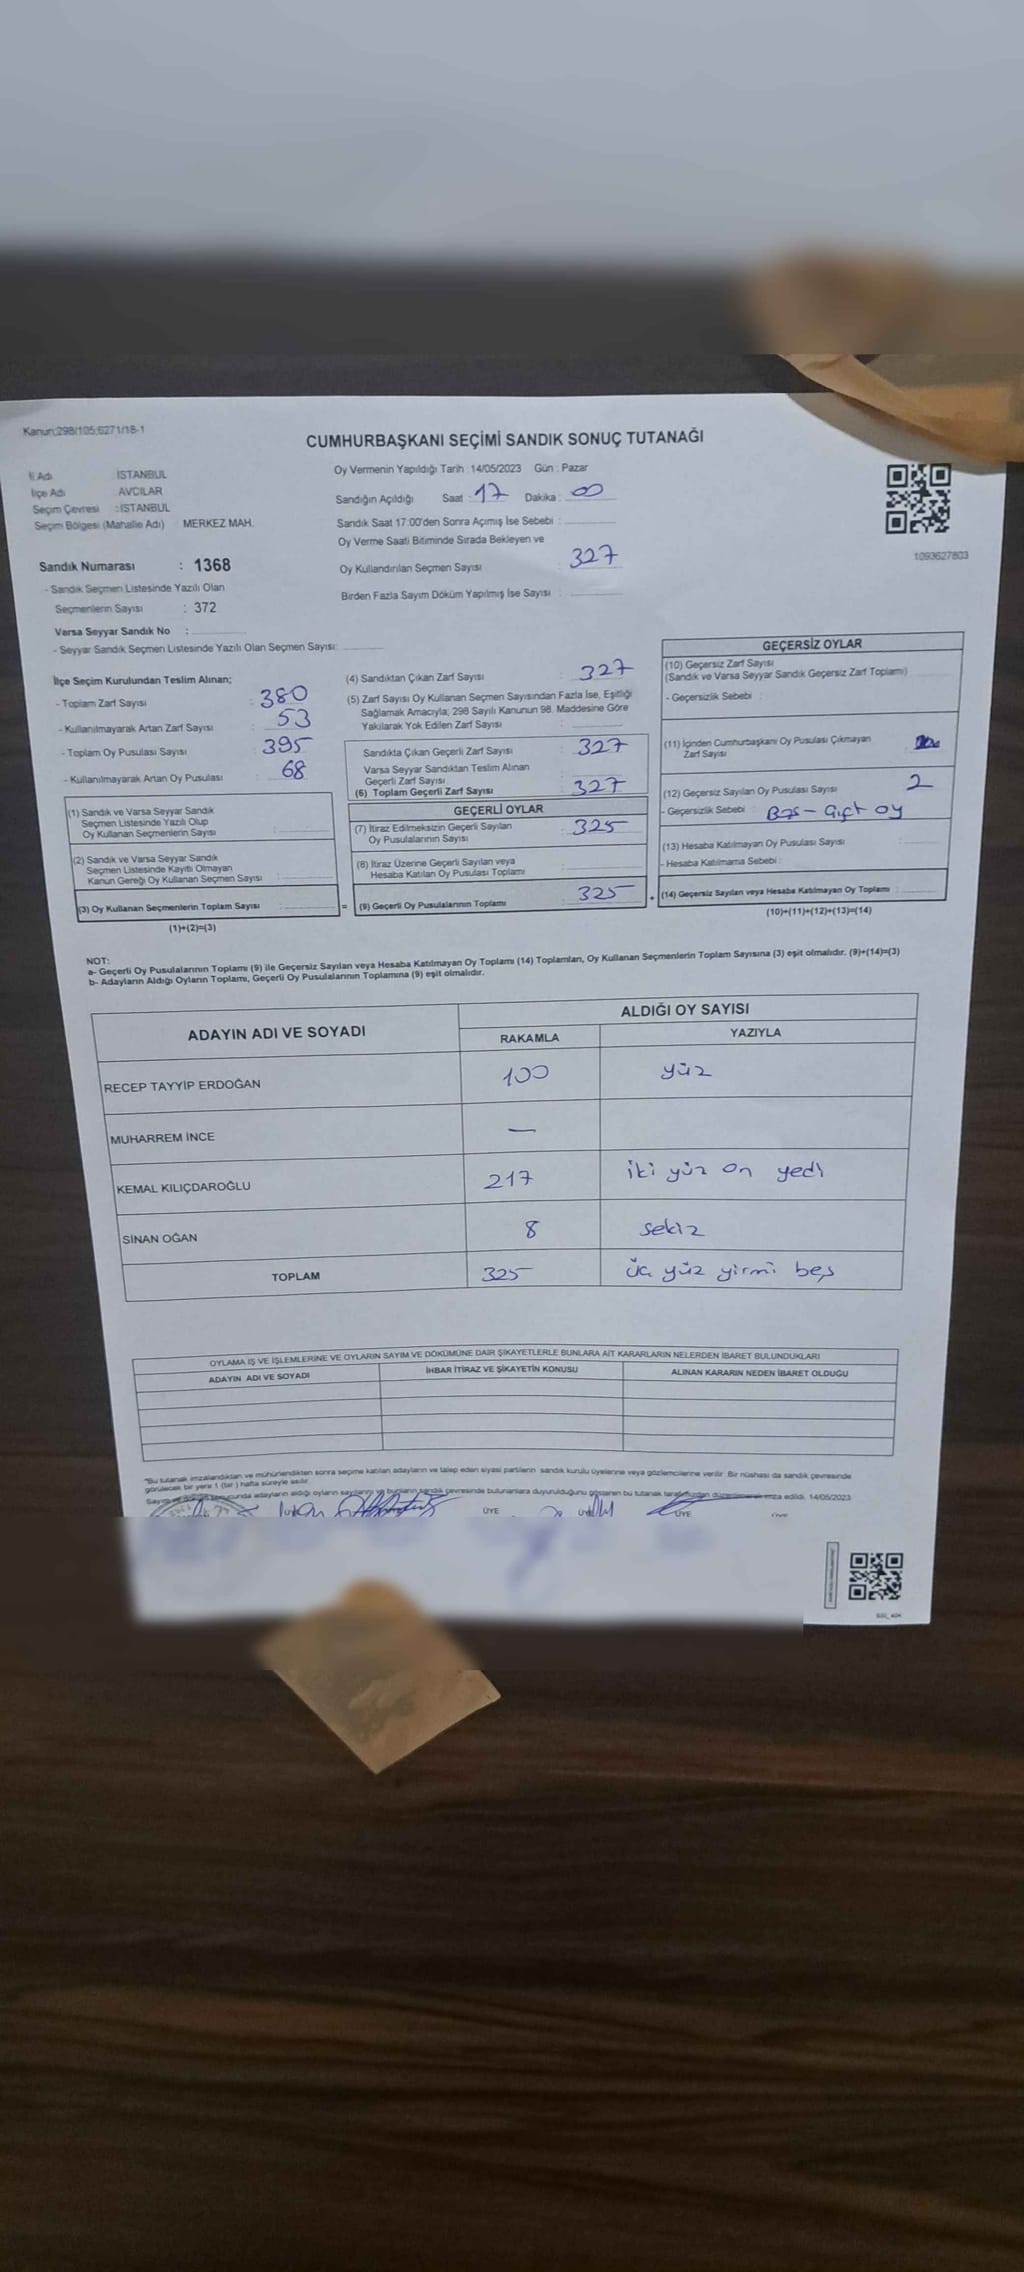 Kanun;298/105;6271/18-1
CUMHURBAŞKANI SEÇİMİ SANDIK SONUÇ TUTANAĞI
İl Adı : İSTANBUL
İlçe Adı : AVCILAR
Seçim Çevresi : İSTANBUL
Seçim Bölgesi (Mahalle Adı) : MERKEZ MAH.
Sandık Numarası : 1368
- Sandık Seçmen Listesinde Yazılı Olan
Seçmenlerin Sayısı : 372
Varsa Seyyar Sandık No :
- Seyyar Sandık Seçmen Listesinde Yazılı Olan Seçmen Sayısı:
Oy Vermenin Yapıldığı Tarih : 14/05/2023 Gün : Pazar
Sandığın Açıldığı Saat : 17 Dakika : 00
Sandık Saat 17:00'den Sonra Açımış İse Sebebi :
Oy Verme Saati Bitiminde Sırada Bekleyen ve
Oy Kullandırılan Seçmen Sayısı : 327
Birden Fazla Sayım Döküm Yapılmış İse Sayısı :
1093627803
İlçe Seçim Kurulundan Teslim Alınan;
- Toplam Zarf Sayısı : 380
- Kullanılmayarak Artan Zarf Sayısı : 53
- Toplam Oy Pusulası Sayısı : 395
- Kullanılmayarak Artan Oy Pusulası : 68
(1) Sandık ve Varsa Seyyar Sandık
Seçmen Listesinde Yazılı Olup
Oy Kullanan Seçmenlerin Sayısı :
(2) Sandık ve Varsa Seyyar Sandık
Seçmen Listesinde Kayıtlı Olmayan
Kanun Gereği Oy Kullanan Seçmen Sayısı :
(3) Oy Kullanan Seçmenlerin Toplam Sayısı :
(1)+(2)=(3)
(4) Sandıktan Çıkan Zarf Sayısı : 327
(5) Zarf Sayısı Oy Kullanan Seçmen Sayısından Fazla İse, Eşitliği
Sağlamak Amacıyla; 298 Sayılı Kanunun 98. Maddesine Göre
Yakılarak Yok Edilen Zarf Sayısı :
Sandıkta Çıkan Geçerli Zarf Sayısı : 327
Varsa Seyyar Sandıktan Teslim Alınan
Geçerli Zarf Sayısı :
(6) Toplam Geçerli Zarf Sayısı : 327
GEÇERLİ OYLAR
(7) İtiraz Edilmeksizin Geçerli Sayılan
Oy Pusulalarının Sayısı : 325
(8) İtiraz Üzerine Geçerli Sayılan veya
Hesaba Katılan Oy Pusulası Toplamı :
= (9) Geçerli Oy Pusulalarının Toplamı : 325
GEÇERSİZ OYLAR
(10) Geçersiz Zarf Sayısı
(Sandık ve Varsa Seyyar Sandık Geçersiz Zarf Toplamı)
- Geçersizlik Sebebi :
(11) İçinden Cumhurbaşkanı Oy Pusulası Çıkmayan
Zarf Sayısı
(12) Geçersiz Sayılan Oy Pusulası Sayısı : 2
- Geçersizlik Sebebi : Boş - Çift oy
(13) Hesaba Katılmayan Oy Pusulası Sayısı :
- Hesaba Katılmama Sebebi :
+ (14) Geçersiz Sayılan veya Hesaba Katılmayan Oy Toplamı :
(10)+(11)+(12)+(13)=(14)
NOT:
a- Geçerli Oy Pusulalarının Toplamı (9) ile Geçersiz Sayılan veya Hesaba Katılmayan Oy Toplamı (14) Toplamları, Oy Kullanan Seçmenlerin Toplam Sayısına (3) eşit olmalıdır. (9)+(14)=(3)
b- Adayların Aldığı Oyların Toplamı, Geçerli Oy Pusulalarının Toplamına (9) eşit olmalıdır.
ADAYIN ADI VE SOYADI ALDIĞI OY SAYISI
RAKAMLA YAZIYLA
RECEP TAYYİP ERDOĞAN 100 yüz
MUHARREM İNCE —
KEMAL KILIÇDAROĞLU 217 iki yüz on yedi
SİNAN OĞAN 8 sekiz
TOPLAM 325 üç yüz yirmi beş
OYLAMA İŞ VE İŞLEMLERİNE VE OYLARIN SAYIM VE DÖKÜMÜNE DAİR ŞİKAYETLERLE BUNLARA AİT KARARLARIN NELERDEN İBARET BULUNDUKLARI
ADAYIN ADI VE SOYADI İHBAR İTİRAZ VE ŞİKAYETİN KONUSU ALINAN KARARIN NEDEN İBARET OLDUĞU
"Bu tutanak imzalandıktan ve mühürlendikten sonra seçime katılan adayların ve talep eden siyasi partilerin sandık kurulu üyelerine veya gözlemcilerine verilir. Bir nüshası da sandık çevresinde
görülecek bir yere 1 (bir) hafta süreyle asılır.
sonucunda adayların aldığı oyların sayılarını ve bunların sandık çevresinde bulunanlara duyurulduğunu gösteren bu tutanak tarafımızdan düzenlenerek imza edildi. 14/05/2023
ÜYE ÜYE ÜYE